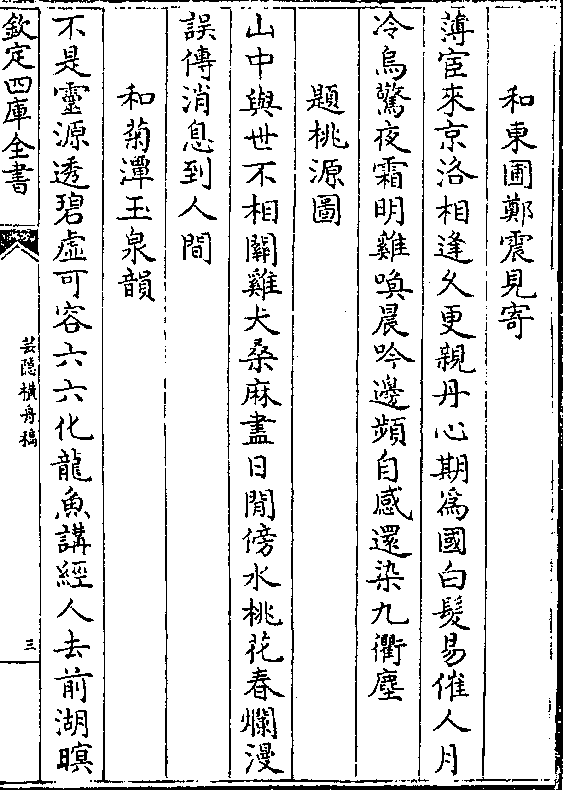 和東圃鄭震見寄
薄宦來京洛相逢久更親丹心期爲國白髮易催人月
冷烏驚夜霜明雞喚晨吟邊頻自感還染九衢塵
題桃源圖
山中與世不相關雞犬桑麻盡日閒傍水桃花春爛漫
誤傳消息到人間
和菊潭玉泉韻
不是靈源透碧虛可容六六化龍魚講經人去前湖暝
欽定四庫全書
芸隠橫舟稿
三